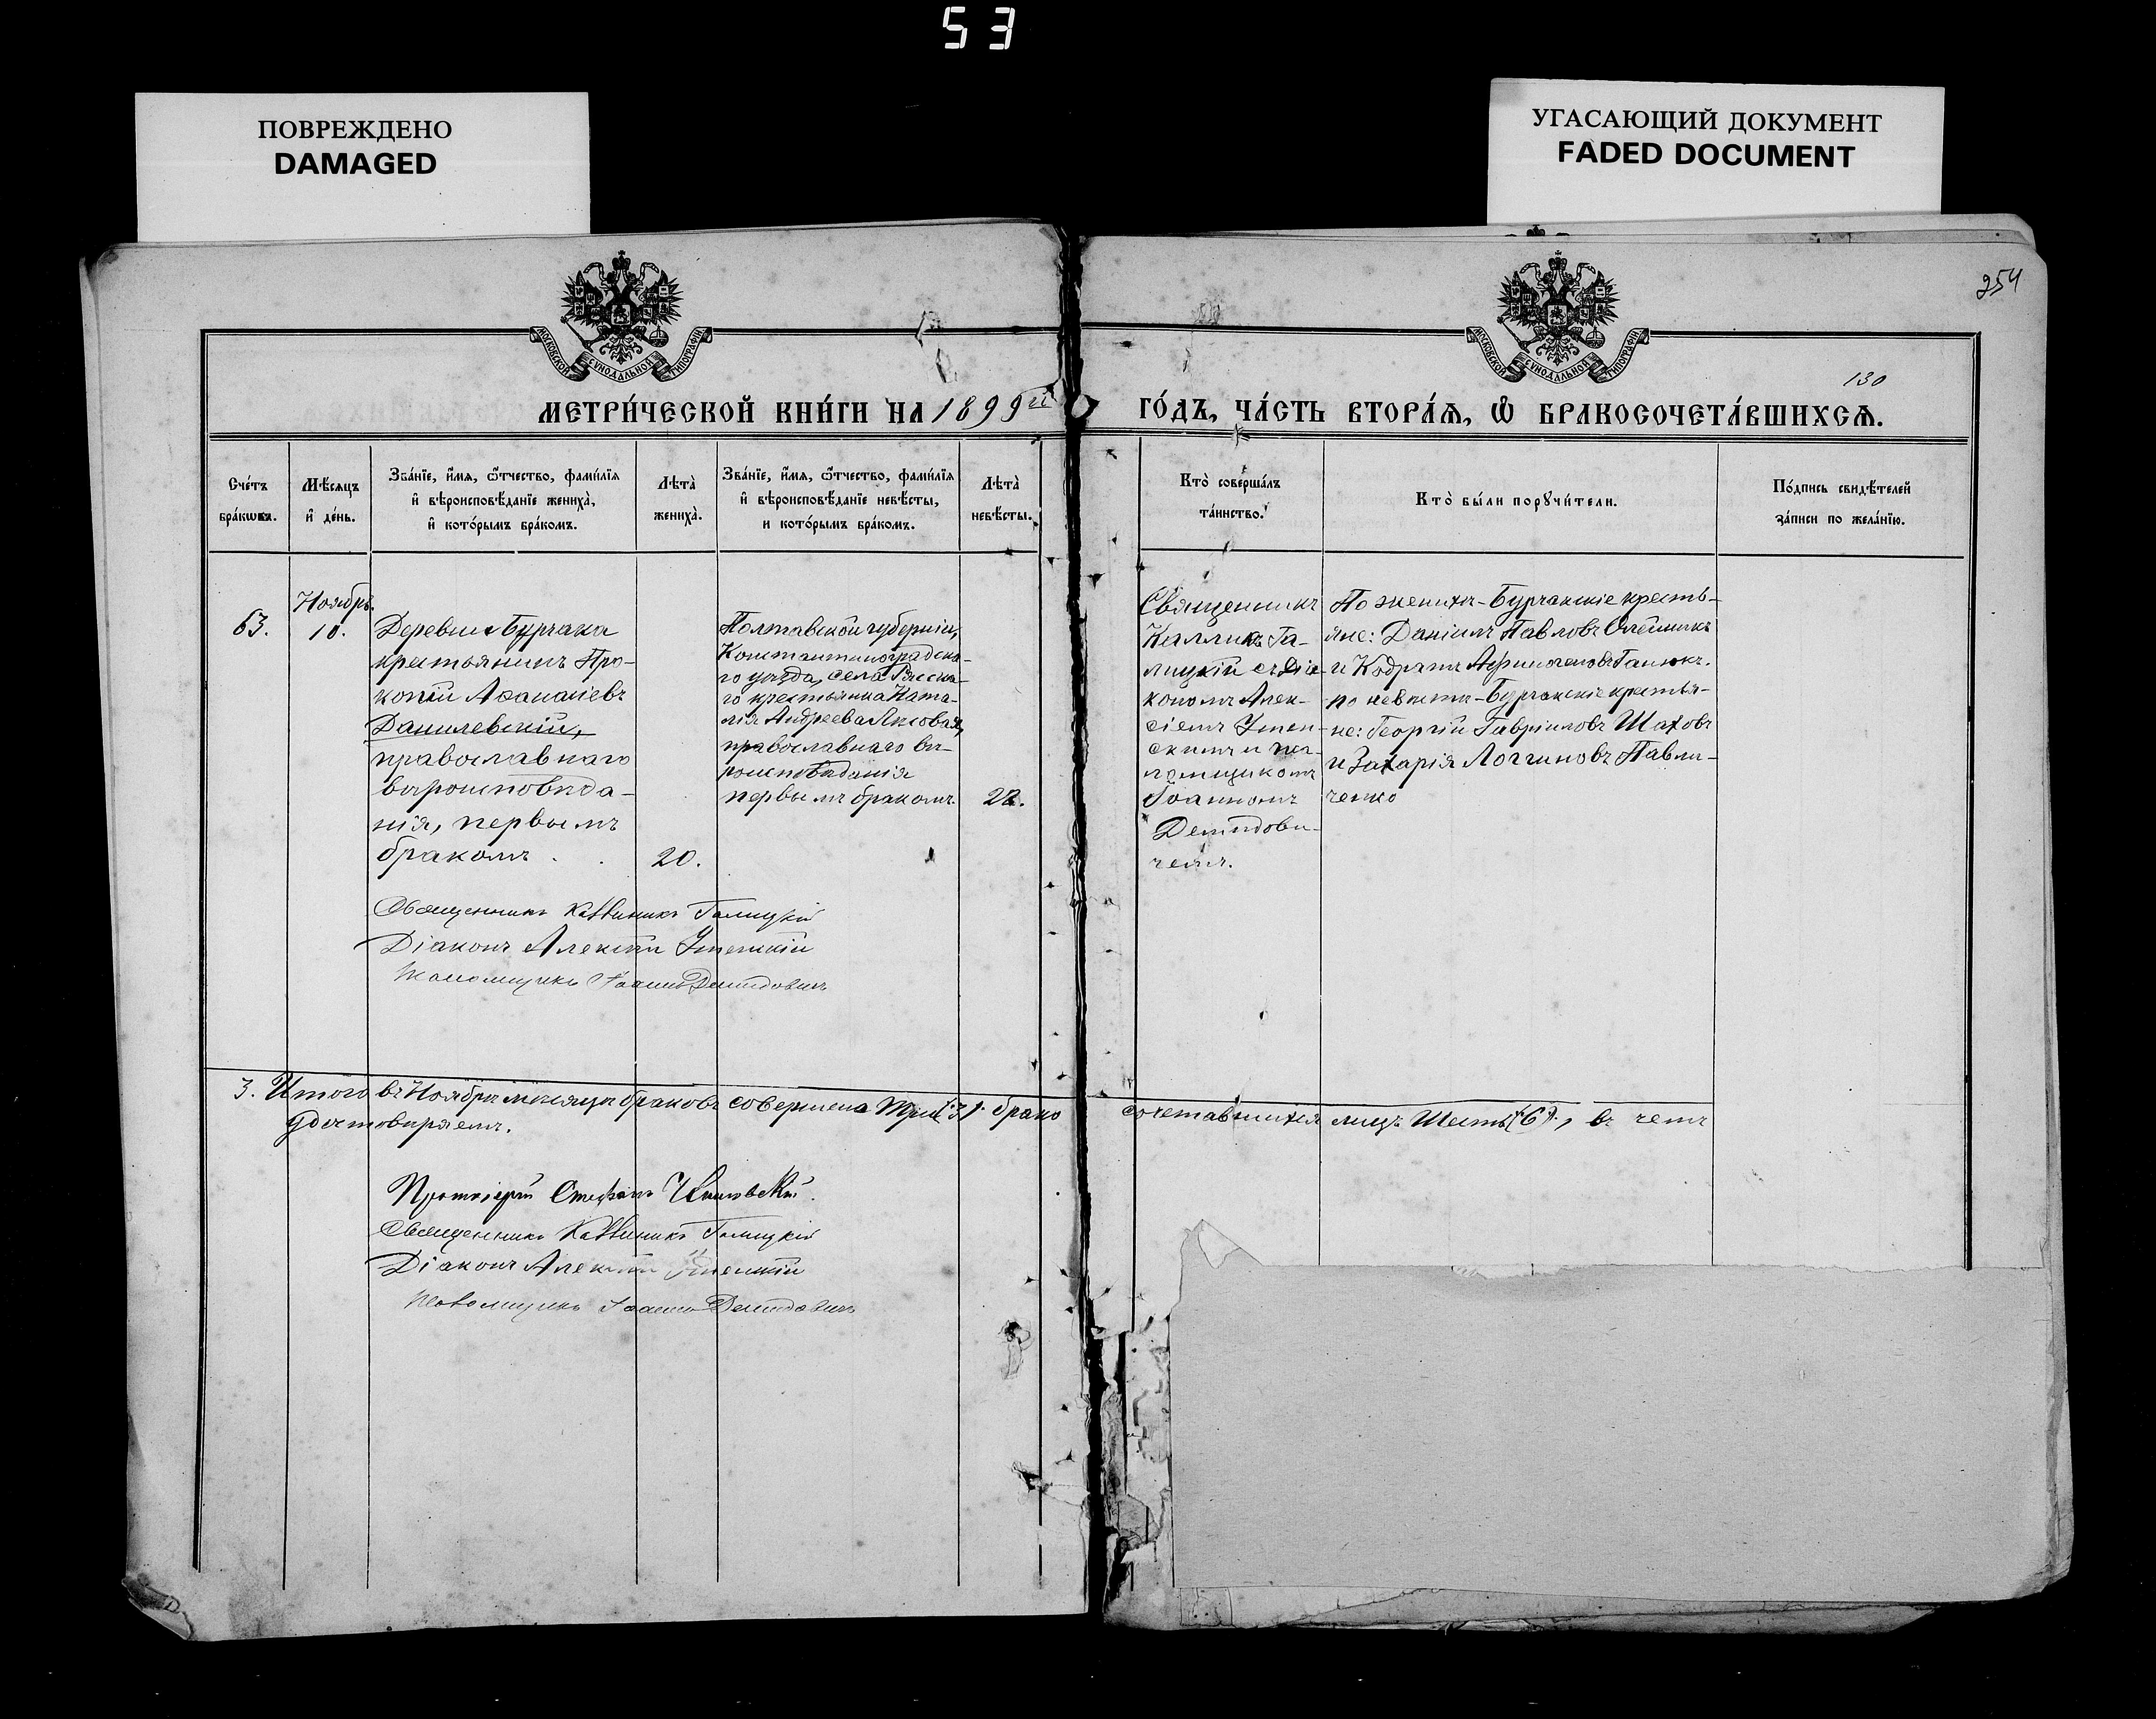 53
ПОВРЕЖДЕНО
DAMAGED
УГАСАЮЩИЙ ДОКУМЕНТ
FADED DOCUMENT
254
МОСКОВСКОЙ СѴНОДАЛЬНОЙ ТИПОГРАФІИ
МОСКОВСКОЙ СѴНОДАЛЬНОЙ ТИПОГРАФІИ
130
МЕТРИ́ЧЕСКОЙ КНИ́ГИ НА 1899й
ГО́ДЪ, ЧА́СТЬ ВТОРА́Я, Ѡ БРАКОСОЧЕТА́ВШИХСЯ.
Сче́тъ
бра́кωвъ.
Мѣ́сяцъ
и҆ де́нь.
Зва́нїе, и҆́мя, ѻ҆́тчество, фами́лїя
и҆ вѣроисповѣ́данїе жениха̀,
и҆ кото́рымъ бра́комъ.
Лѣта̀
жениха̀.
Зва́нїе, и҆́мя, ѻ҆́тчество, фами́лїя
и҆ вѣроисповѣ́данїе невѣ́сты,
и кото́рымъ бра́комъ.
Лѣта̀
невѣ́сты.
Кто̀ соверша́лъ
та́инство.
Кто̀ бы́ли порꙋчи́тели.
По́дпись свидѣ́телей
за́писи по жела́нїю.
63.
Ноябрь.
10.
Деревни Бурчака
крестьянинъ Про-
копій Аѳанасіевъ
Данилевскій,
православнаго
вѣроисповѣда-
нія, первымъ
бракомъ
20.
Полтавской губерніи,
Константиноградска-
го уѣзда, села
го крестьянка Ната-
лія Андреева
православнаго вѣ-
роисповѣданія
первымъ бракомъ.
22.
Священникъ
Каллиникъ Га-
лицкій съ діа-
кономъ Алек-
сіемъ Успен-
скимъ и пса-
ломщикомъ
Іоанномъ
Демидови-
чемъ.
По женихѣ - Бурчакскіе кресть-
яне: Даніилъ Павловъ Олейникъ
и Кодратъ
по невѣстѣ - Бурчакскіе крестья-
не: Георгій Гавріиловъ Шаховъ
и Захарія Логгиновъ Павли-
ченко
Священникъ Каллиникъ Галицкій
Діаконъ Алексѣй Успенскій
Псаломщикъ Іоаннъ Демидовичъ
3. Итого въ Ноябрѣ мѣсяцѣ браковъ совершено три (3). брако
сочетавшихся лицъ шесть (6)., въ чемъ
удостовѣряемъ.
Протоіерей Стефанъ
Священникъ Каллиникъ Галицкій
Діаконъ Алексѣй Успенскій
Псаломщикъ Іоаннъ Демидовичъ